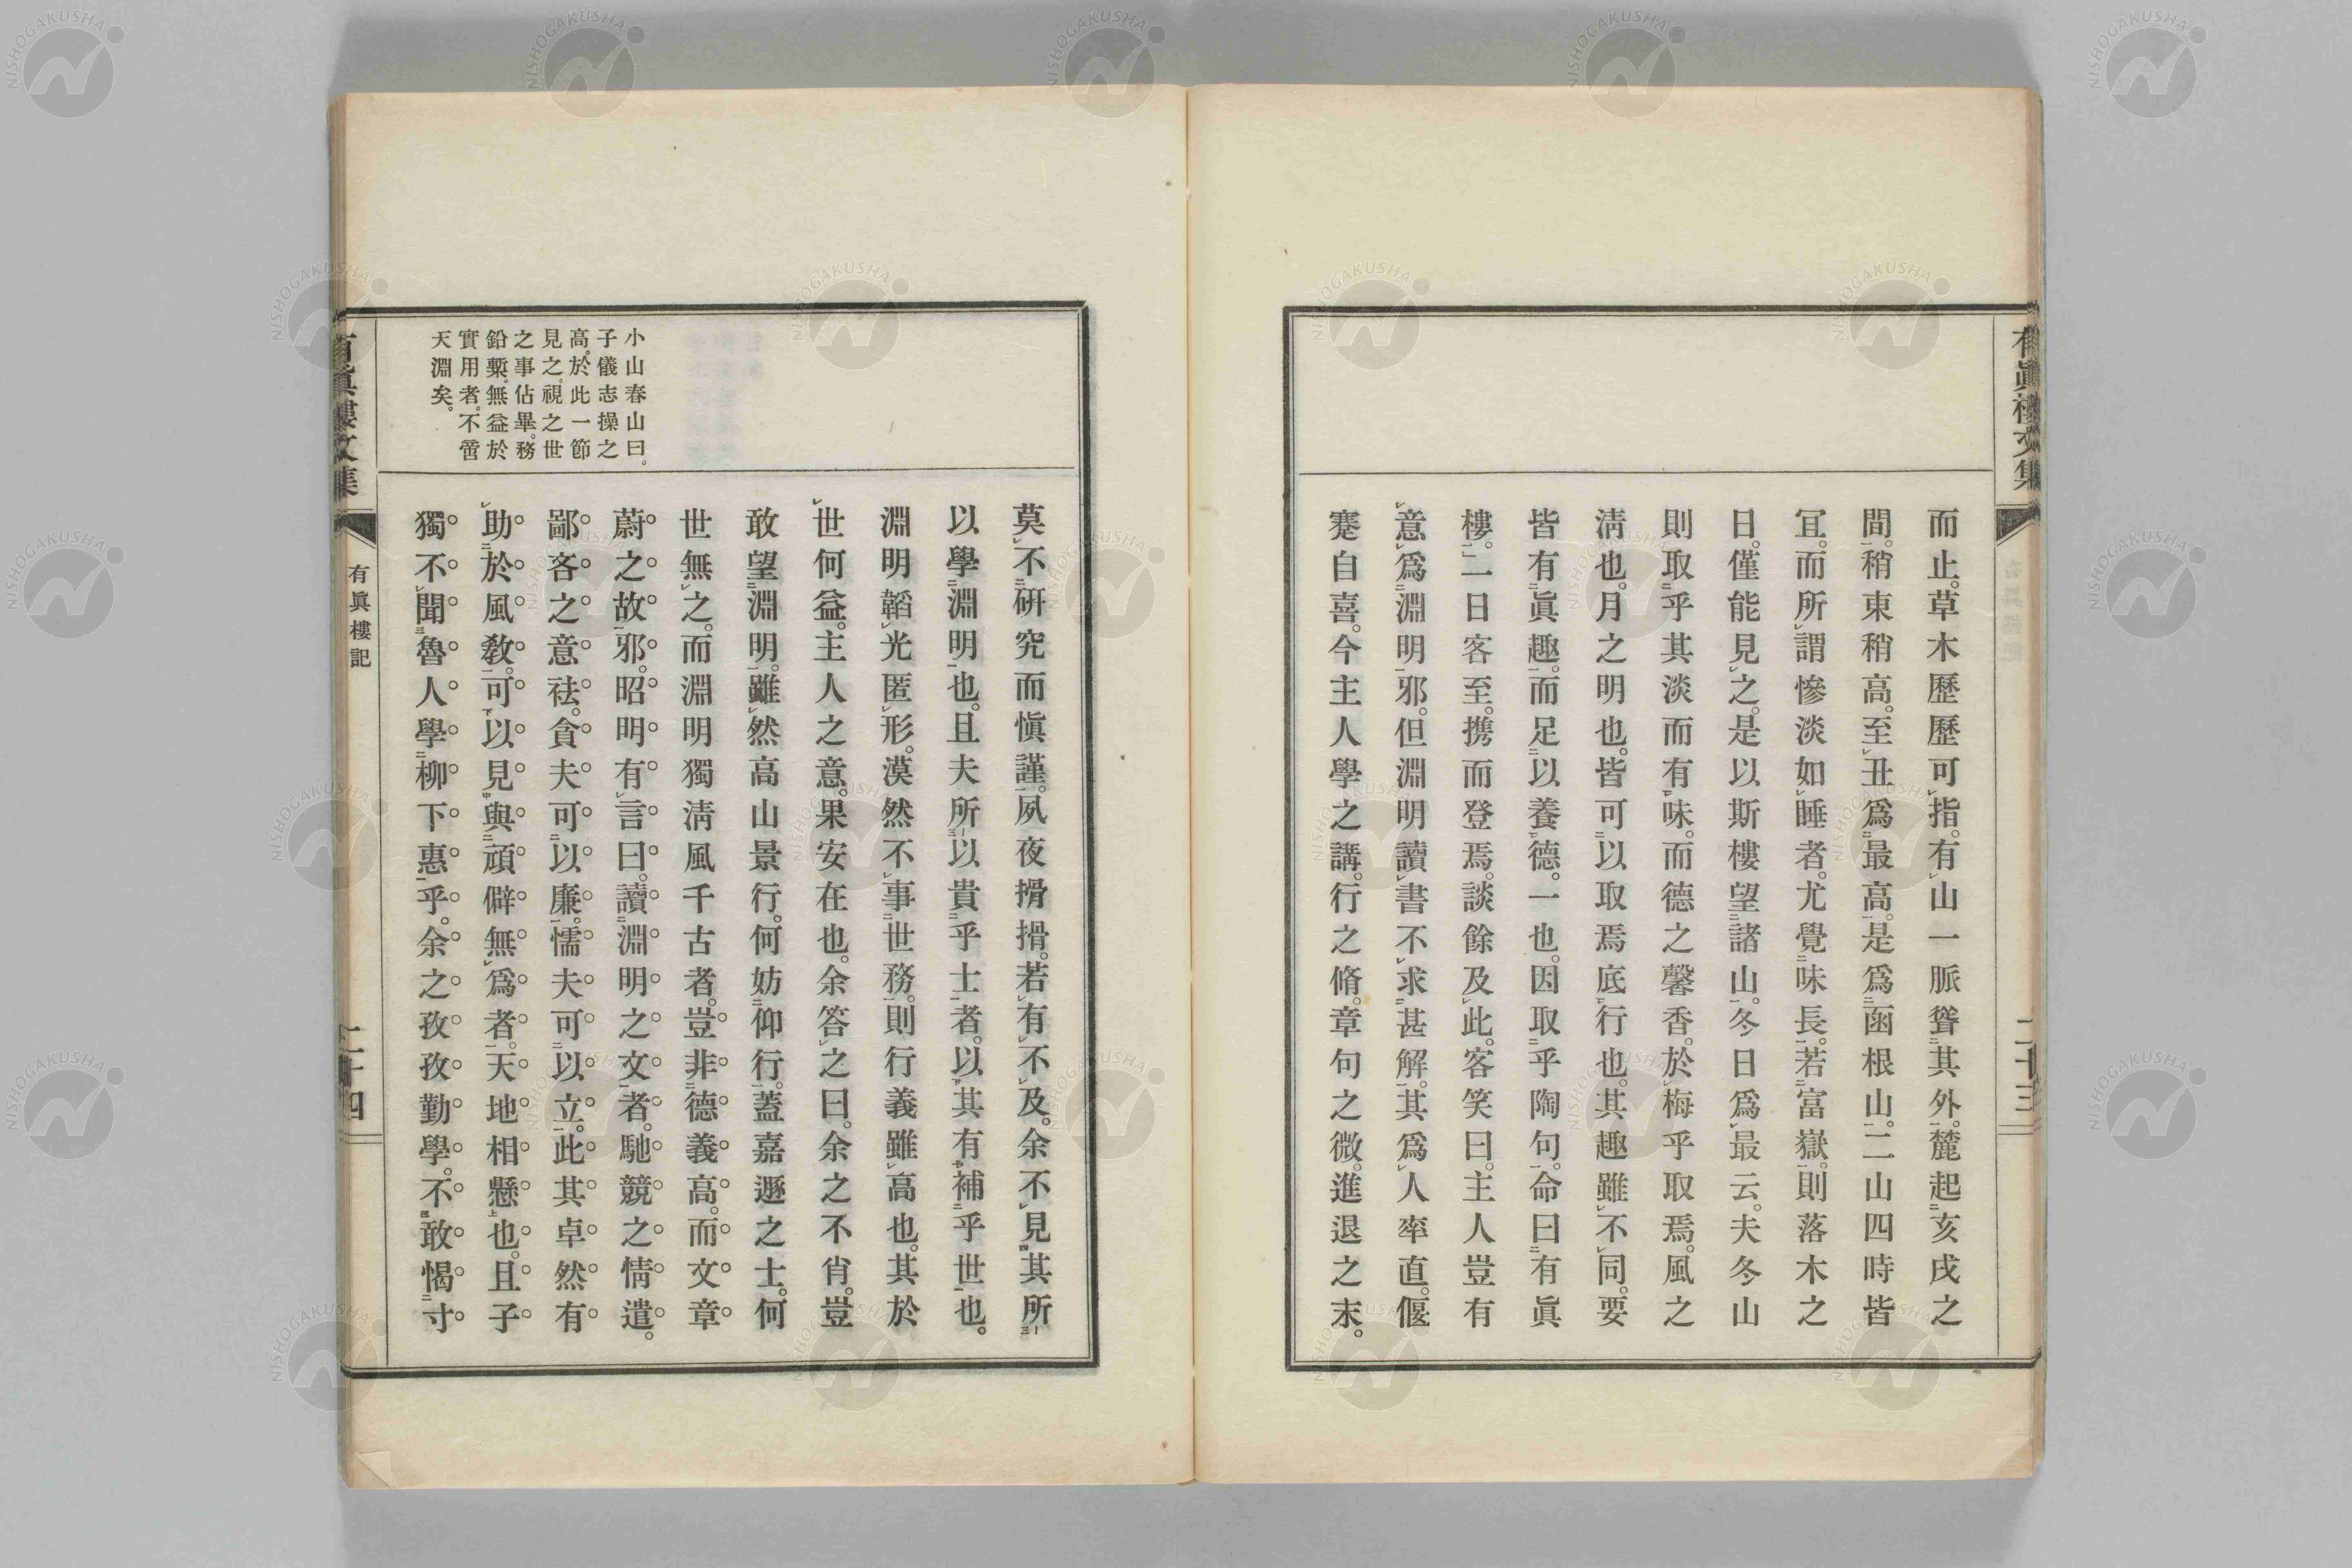 有眞樓文集
二十三
而止。草木歷歷可指。有山一脈聳其外。麓起亥戌之
間。稍東稍高。至丑爲最高。是爲函根山。二山四時皆
冝。而所謂慘淡如睡者。尤覺味長。若富嶽。則落木之
日。僅能見之。是以斯樓望諸山。冬日爲最云。夫冬山
則取乎其淡而有味。而德之馨香。於梅乎取焉。風之
淸也。月之明也。皆可以取焉底行也。其趣雖不同。要
皆有眞趣。而足以養德。一也。因取乎陶句。命曰有眞
樓。一日客至。携而登焉。談餘及此。客笑曰。主人豈有
意爲淵明邪。但淵明讀書不求甚解。其爲人率直。偃
蹇自喜。今主人學之講。行之脩。章句之微。進退之末。
莫不硏究而愼謹。夙夜搰搰。若有不及。余不見其所
以學淵明也。且夫所以貴乎士者。以其有補乎世也。
淵明韜光匿形。漠然不事世務。則行義雖高也。其於
世何益。主人之意。果安在也。余答之曰。余之不肖。豈
敢望淵明。雖然高山景行。何妨仰行。蓋嘉遯之士。何
世無之。而淵明獨淸風千古者。豈非德義高。而文章
蔚之故邪。昭明有言曰。讀淵明之文者。馳競之情遣。
鄙吝之意祛。貪夫可以廉。懦夫可以立。此其卓然有
助於風敎。可以見與頑僻無爲者。天地相懸也。且子
獨不聞魯人學柳下惠乎。余之孜孜勤學。不敢愒寸
小山春山曰。
子儀志操之
高。於此一節
見之。視之世
之事佔畢。務
鉛槧。無益於
實用者。不啻
天淵矣。
有眞樓文集
有眞樓記
二十四
NISHOGAKUSHA